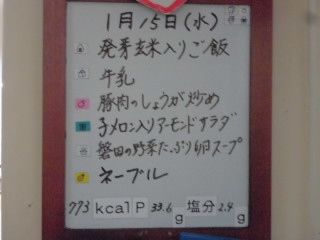 1月15日(水)
発芽玄米入りご飯
牛乳
豚肉のしょうが炒め
子メロン入りアーモンドサラダ
磐田の野菜たっぷり卵スープ
ネーブル
773 kcal P 33.6g 塩分 2.4g